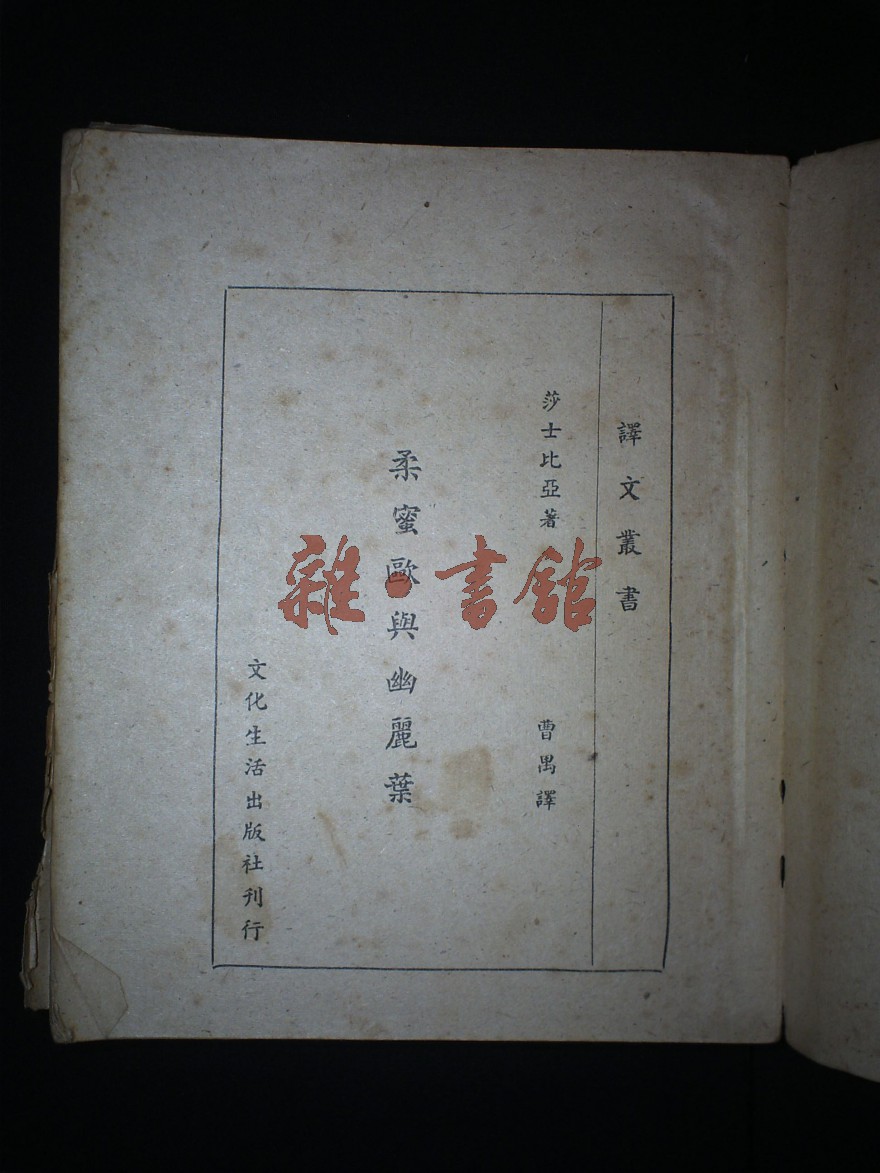 譯文叢書
莎士比亞著
曹禺譯
柔蜜歐與幽麗葉
文化生活出版社刊行
雜·書館